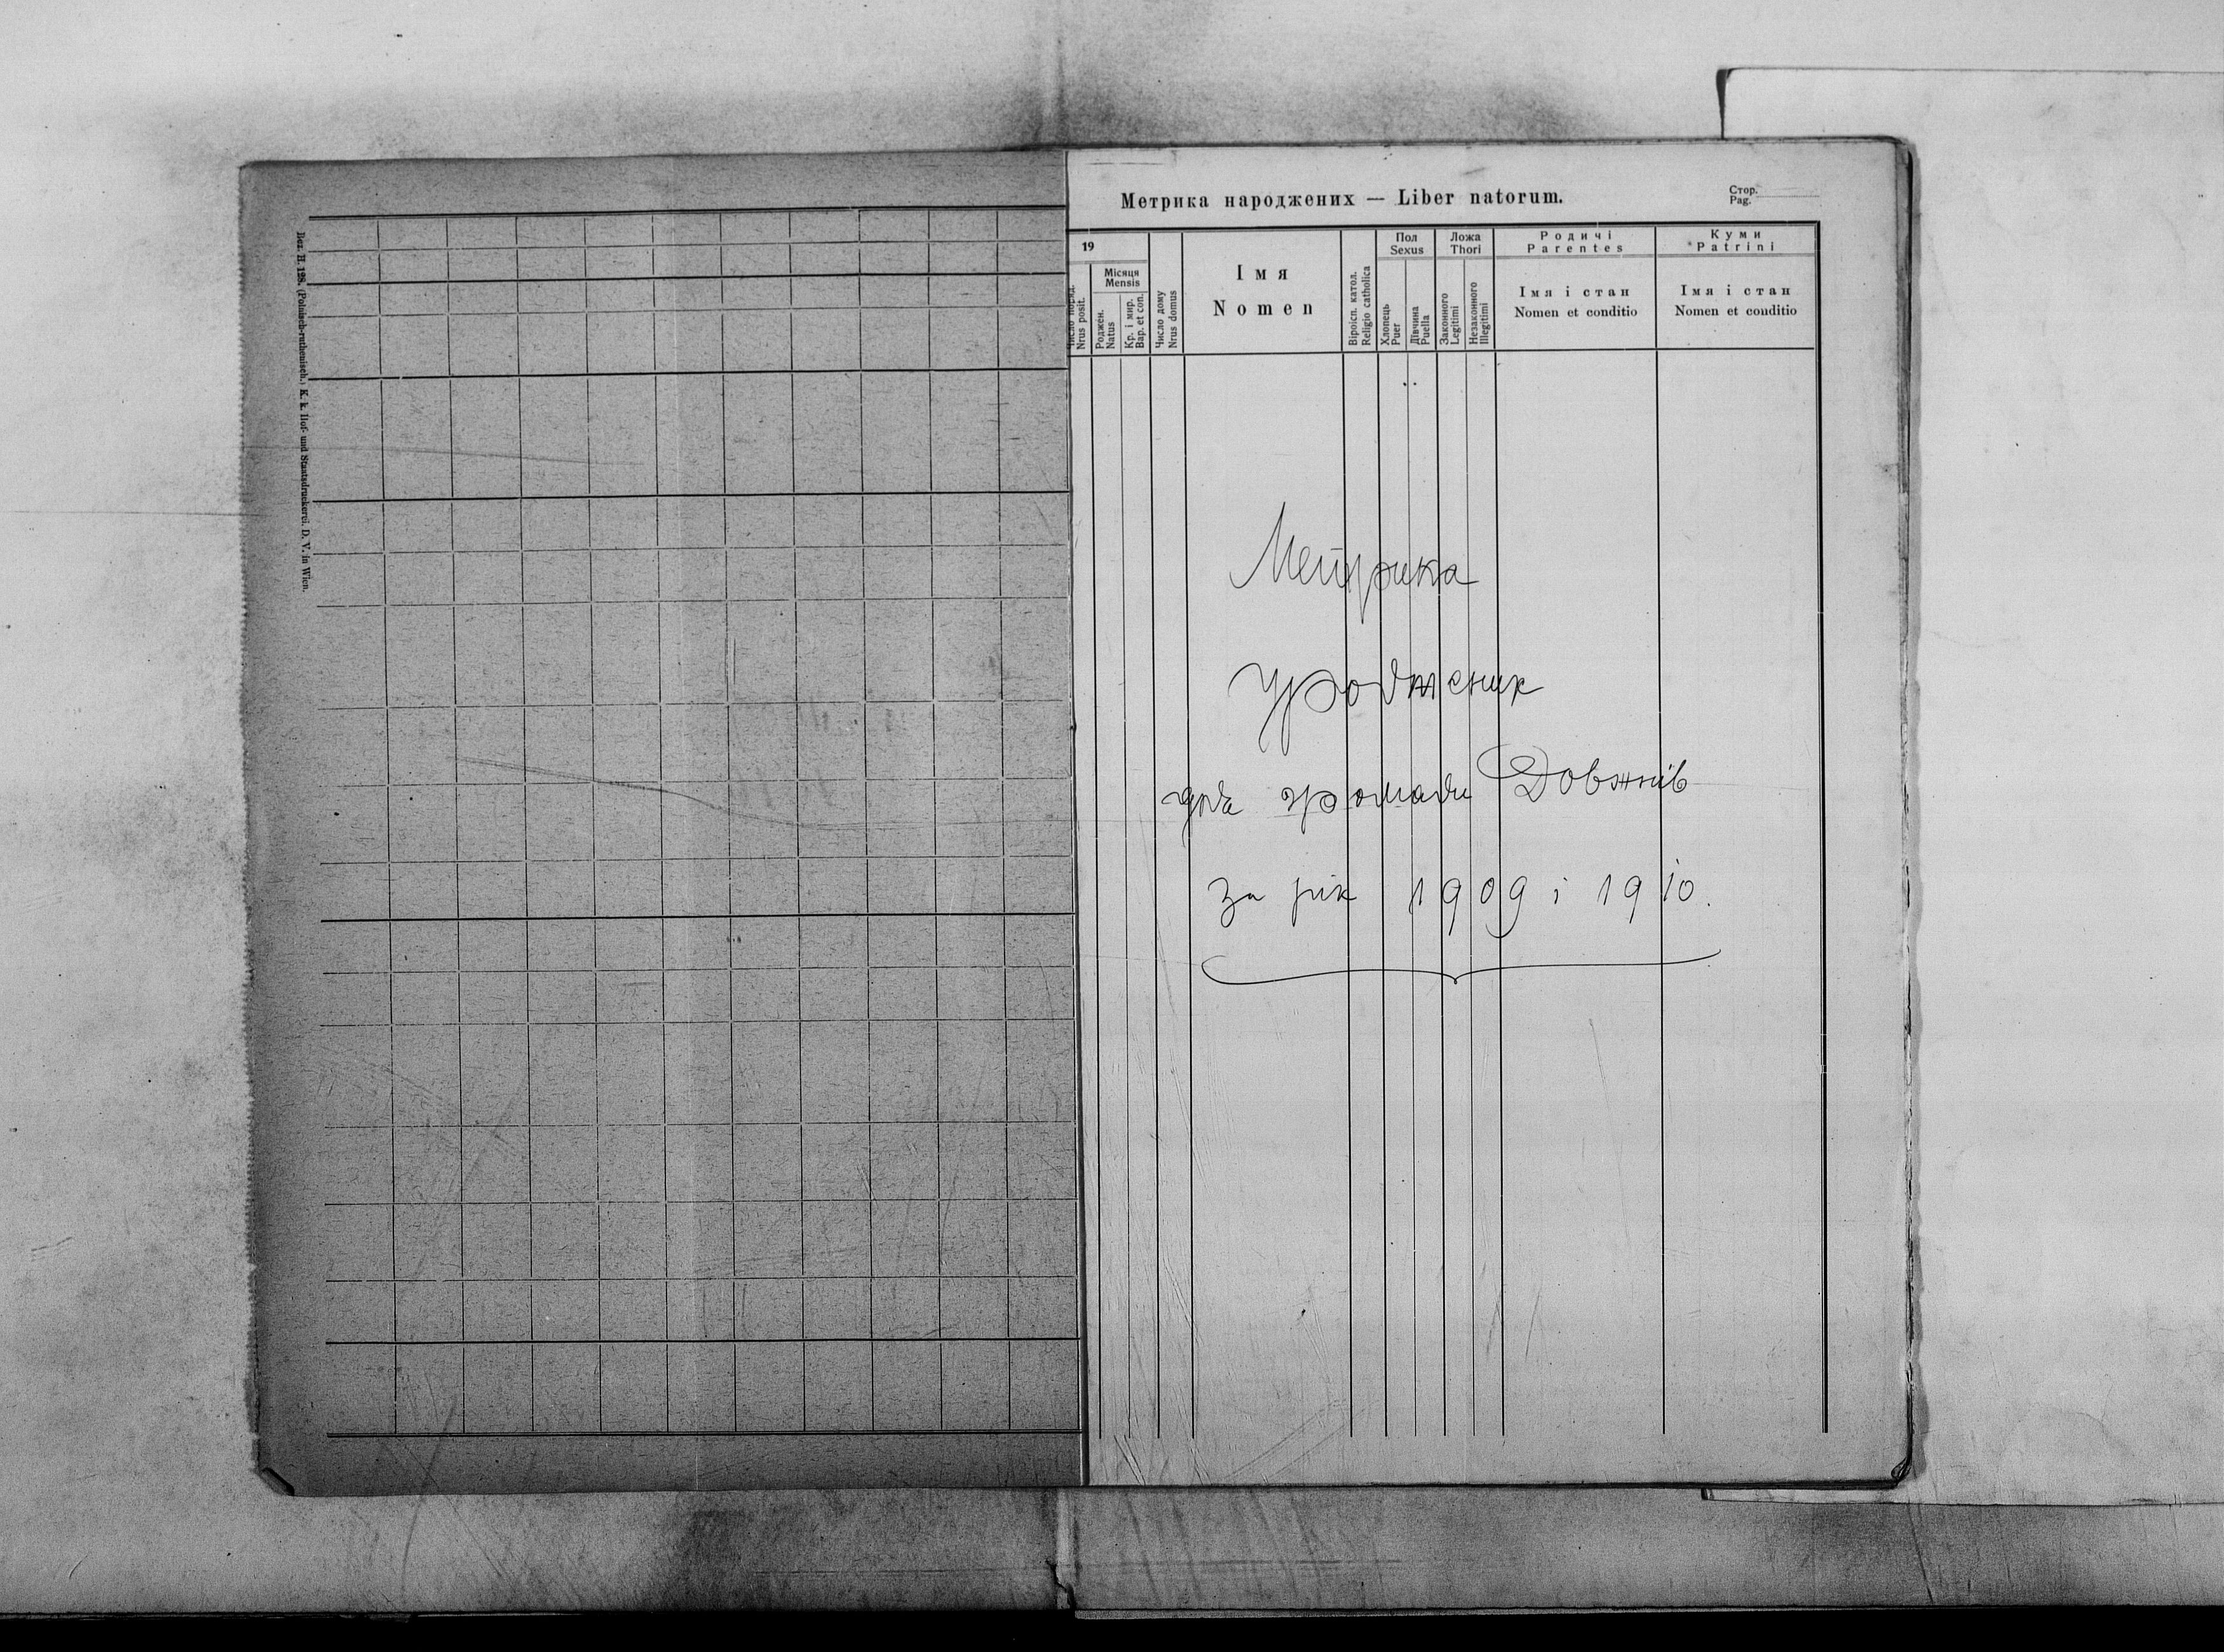 Bez. H. 128. (Polnisch-ruthenisch.) K. k. Hof- und Staatsdruckerei. D. V. in Wien.
Метрика народжених — Liber natorum.
Стор.
Pag.
19
Число поряд.
Nrus posit.
Місяця
Mensis
Роджен.
Natus
Кр. і мир.
Bap. et con.
Число дому
Nrus domus
Імя
Nomen
Віроісп. катол.
Religio catholica
Пол
Sexus
Хлопець
Puer
Дівчина
Puella
Ложа
Thori
Законного
Legitimi
Незаконного
Illegitimi
Родичі
Parentes
Імя і стан
Nomen et conditio
Куми
Patrini
Імя і стан
Nomen et conditio
Метрика
урожденних
для громади Довжнів
за рік 1909 і 1910.